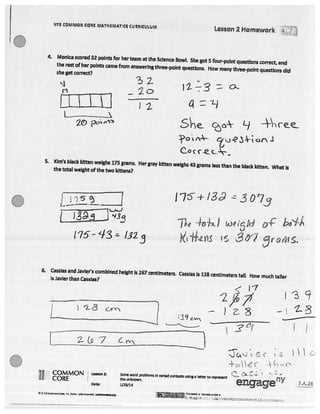 NYS COMMON CORE MATHEMATICS CURRICULUM
Lesson 2 Homework
4. Monica scored 32 points for her team at the Science Bowl. She got 5 four-point questions correct, and
the rest of her points came from answering three-point questions. How many three-point questions did
she get correct?
4
32
- 20
12
12 ÷ 3 = a
a = 4
20 points
She got 4 three
point questions
correct.
5. Kim's black kitten weighs 175 grams. Her gray kitten weighs 43 grams less than the black kitten. What is
the total weight of the two kittens?
175g
132g
43g
175 - 43 = 132g
175 + 132 = 307g
The total weight of both
kittens is 307 grams.
6. Cassias and Javier's combined height is 267 centimeters. Cassias is 128 centimeters tall. How much taller
is Javier than Cassias?
128 cm
139cm
267 cm
5 17
267
- 128
139
139
- 128
11
Javier is 11 c
taller than
COMMON
CORE
Lesson 2:
Date:
Solve word problems in varied contexts using a letter to represent
the unknown.
engage ny